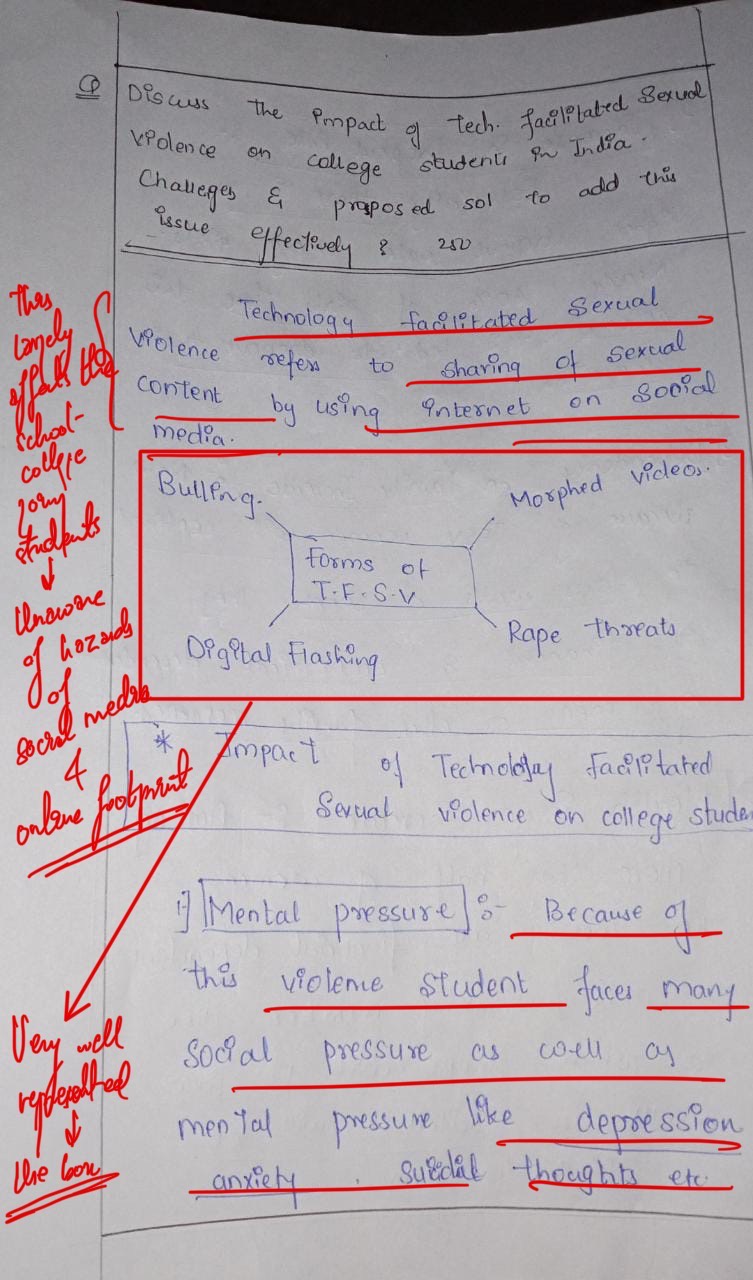 Q Discuss the impact of tech. facilitated Sexual
violence on college students in India.
Challeges & proposed sol to add this
issue effectively ? 250
Technology facilitated Sexual
violence refers to sharing of sexual
content by using internet on social
media.
Bulling.
Morphed videos.
Forms of
T.F.S.V
Digital Flashing
Rape threats
* Impact of Technology facilitated
Sexual violence on college stude
1] Mental pressure] :- Because of
this violence student faces many
social pressure as well as
mental pressure like depression
anxiety, suicidal thoughts etc.
This
largely
affects the
school-
college
going
students
↓
Unaware
of hazards
of
social media
&
online footprint
Very well
represented
↓
the box